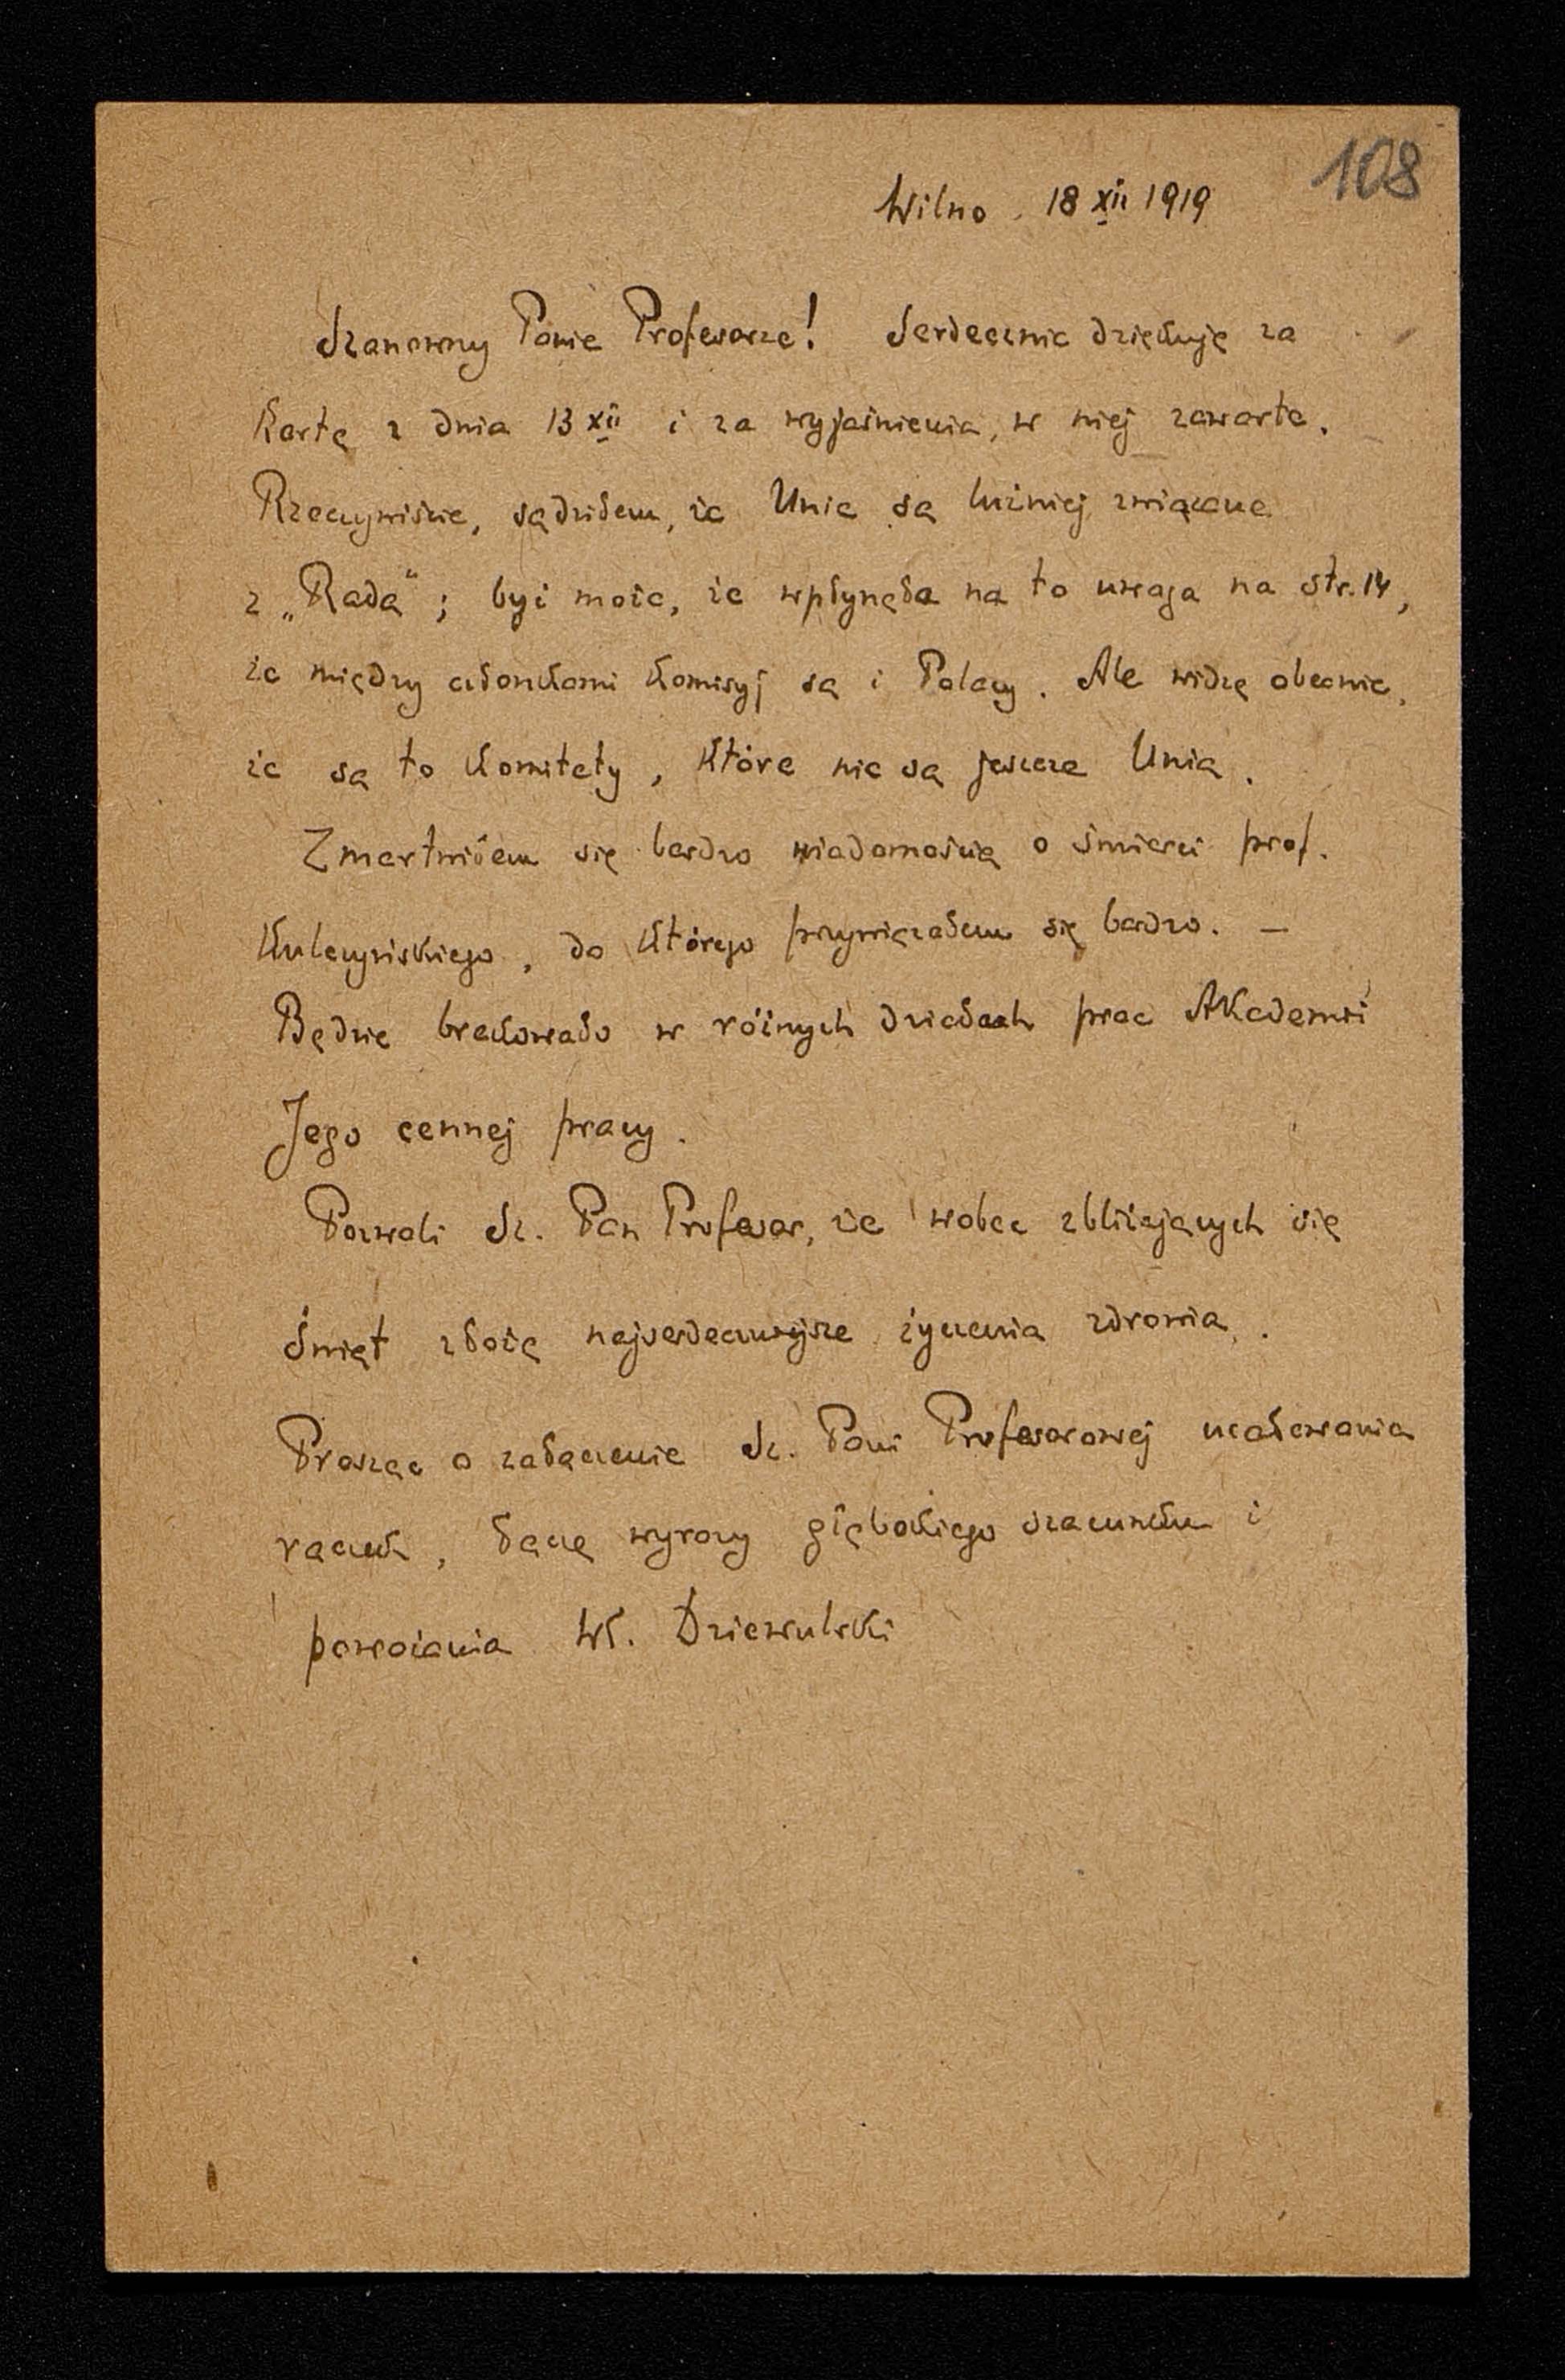 108
Wilno, 18 XII 1919
Szanowny Panie Profesorze! Serdecznie dziękuję za
Kartę z dnia 13 XII i za wyjaśnienia, w niej zawarte.
Rzeczywiście, sądziłem, że Unie są luźniej związane
z „Radą“; być może, że wpłynęła na to uwaga na str. 14,
że między członkami Komisyj są i Polacy. Ale widzę obecnie,
że są to Komitety, które nie są jeszcze Unią.
Zmartwiłem się bardzo wiadomością o śmierci prof.
Kulczyńskiego, do którego przywiązałem się bardzo. —
Będzie brakowało w różnych działach prac Akademii
Jego cennej pracy.
Pozwoli Sz. Pan Profesor, że wobec zbliżających się
Świąt złożę najserdeczniejsze życzenia zdrowia.
Prosząc o załączenie Sz. Pani Profesorowej ucałowania
rączek, łączę wyrazy głębokiego szacunku i
poważania Wł. Dziewulski